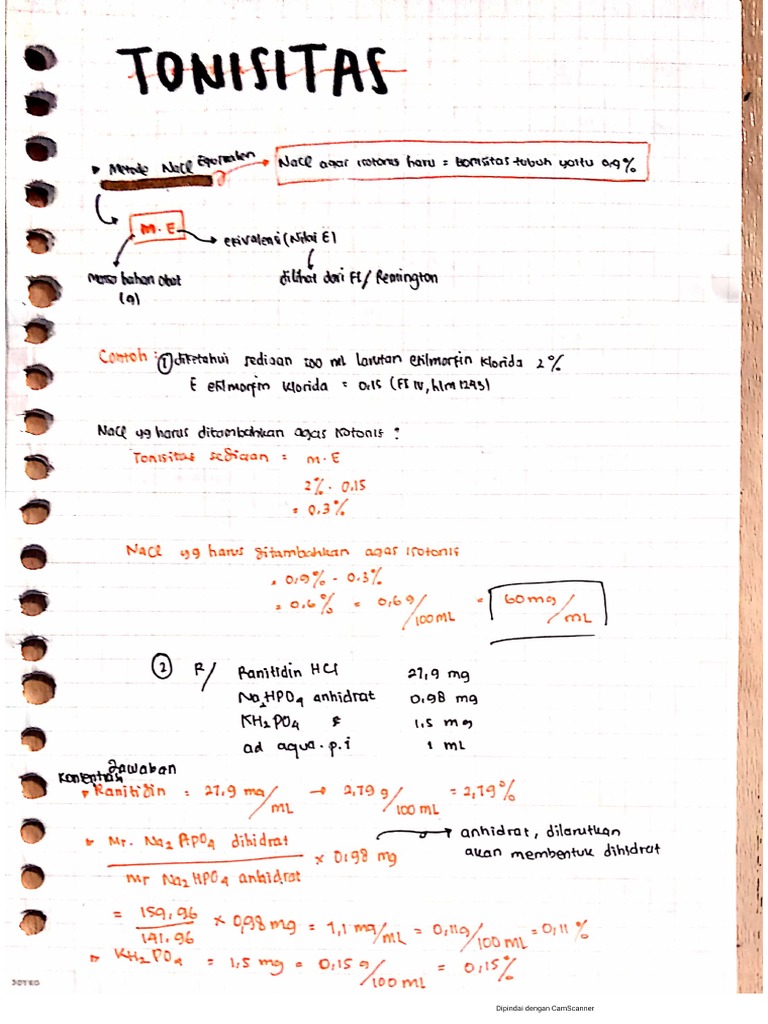 TONISITAS
▸ Metode NaCl Equivalen → NaCl agar isotonis harus = tonisitas tubuh yaitu 0,9%
M.E
→ ekivalensi (Nilai E)
Massa bahan obat
(g)
dilihat dari FI / Remington
Contoh : ① diketahui sediaan 100 ml larutan etilmorfin klorida 2%
E etilmorfin klorida = 0.15 (FI IV, hlm 1293)
NaCl yg harus ditambahkan agas isotonis ?
Tonisitas sediaan = M.E
2% . 0.15
= 0.3%
NaCl yg harus ditambahkan agas isotonis
= 0,9% - 0.3%
= 0.6% = 0,6g/100 mL = 60 mg/mL
② R/ Ranitidin HCl 27,9 mg
Na2HPO4 anhidrat 0.98 mg
KH2PO4 1,5 mg
ad aqua.p.i 1 mL
Jawaban
Konsentrasi
▸ Ranitidin = 27.9 mg/mL → 2,79 g/100 mL = 2,79%
▸ Mr. Na2HPO4 dihidrat / Mr Na2HPO4 anhidrat × 0.98 mg → anhidrat, dilarutkan
akan membentuk dihidrat
= 159,96/141.96 × 0,98 mg = 1,1 mg/mL = 0,11g/100 mL = 0,11 %
▸ KH2PO4 = 1,5 mg = 0,15 g/100 mL = 0,15%
JOYKO
Dipindai dengan CamScanner